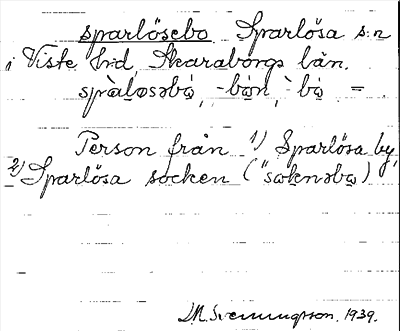 sparlösebo Sparlösa s:n
i Viste hrd, Skaraborgs län.
spàləsəbọ, -bọn, -bọ =
Person från 1) Sparlösa by,
2) Sparlösa socken ("sɷknəbọ)
M. Svenungsson. 1939.